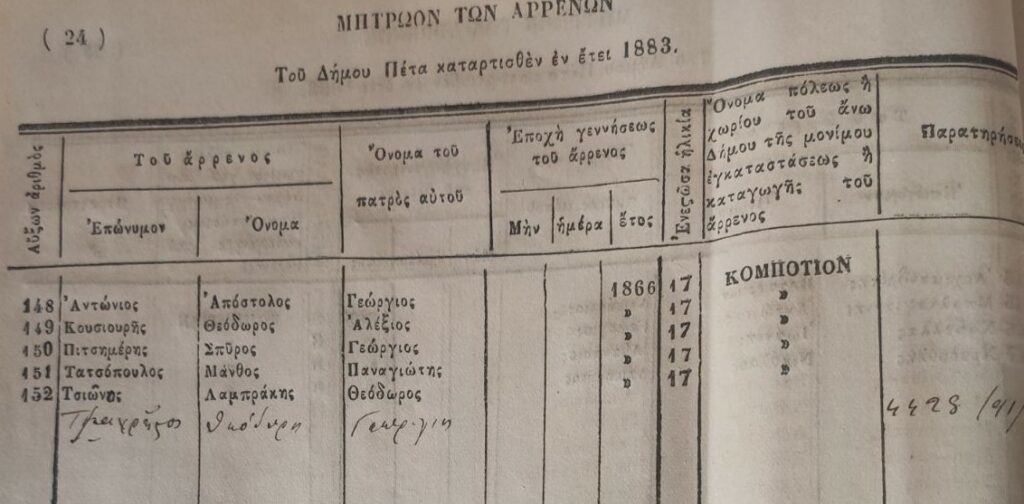 ( 24 )
ΜΗΤΡΩΟΝ ΤΩΝ ΑΡΡΕΝΩΝ
Τοῦ Δήμου Πέτα καταρτισθὲν ἐν ἔτει 1883.
Αὔξων ἀριθμὸς
Τοῦ ἄρρενος
Ἐπώνυμον
Ὄνομα
Ὄνομα τοῦ
πατρὸς αὐτοῦ
Ἐποχὴ γεννήσεως
τοῦ ἄρρενος
Μὴν ἡμέρα ἔτος
Ἐνεστῶσα ἡλικία
Ὄνομα πόλεως ἢ
χωρίου τοῦ ἄνω
Δήμου τῆς μονίμου
ἐγκαταστάσεως ἢ
καταγωγῆς τοῦ
ἄρρενος
Παρατηρήσε
ΚΟΜΠΟΤΙΟΝ
148 Ἀντώνιος Ἀπόστολος Γεώργιος 1866 17 »
149 Κουσιουρῆς Θεόδωρος Ἀλέξιος » 17 »
150 Πιτσημέρης Σπῦρος Γεώργιος » 17 »
151 Τατσόπουλος Μάνθος Παναγιώτης » 17 »
152 Τσιῶνος Λαμπράκης Θεόδωρος » 17 »
4428 (91)